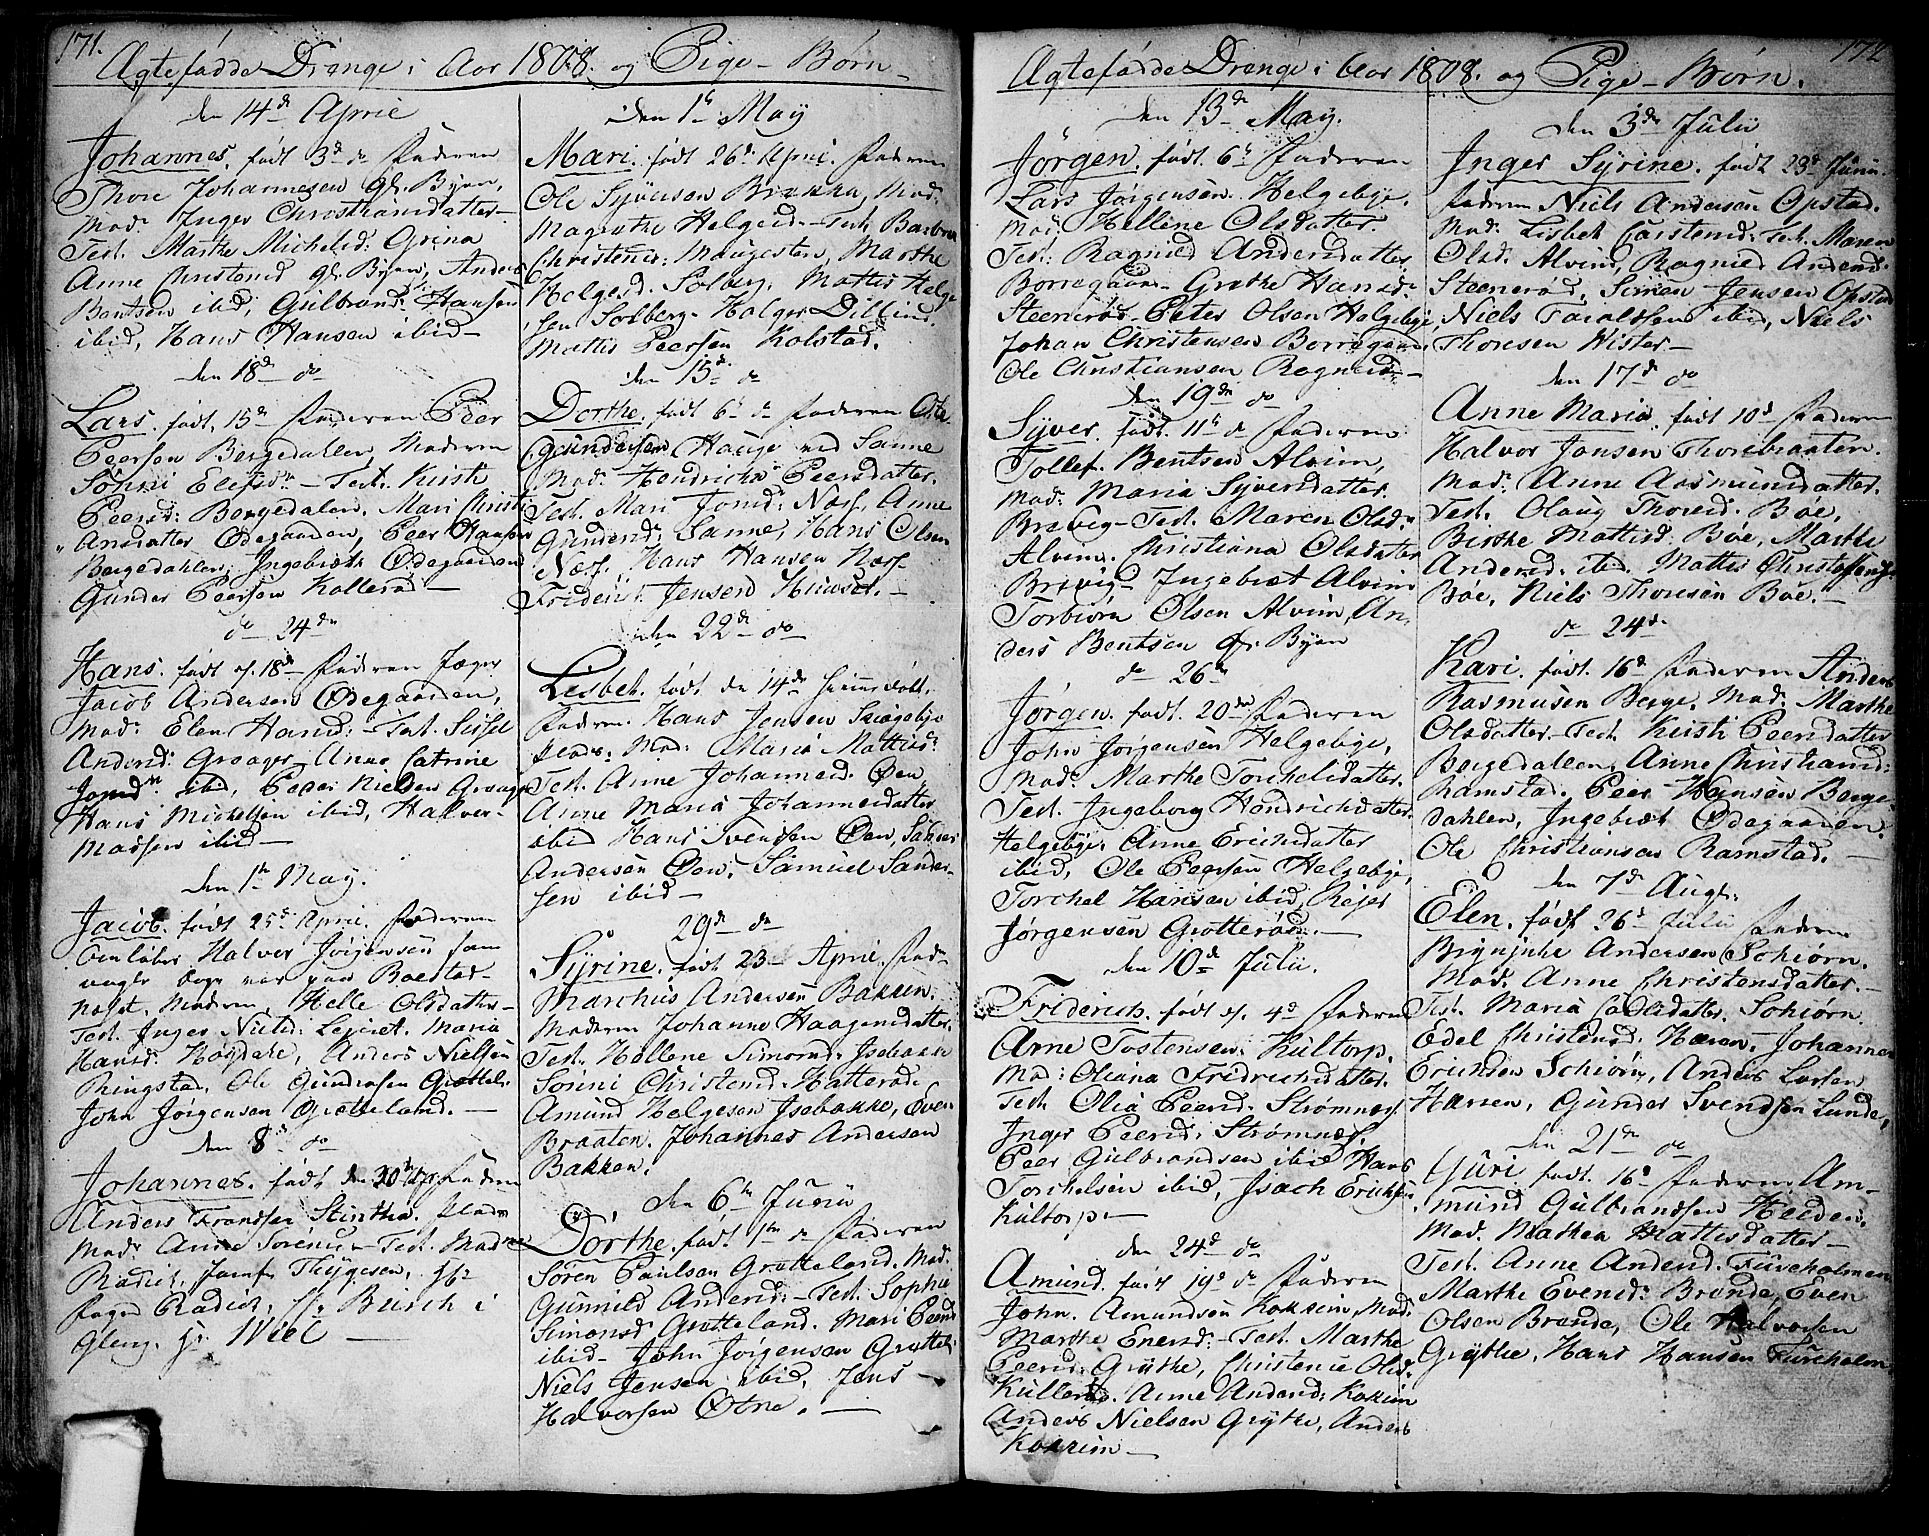 171.
Agtefødde Drenge i Aar 1808. og Pige-Børn
den 14de April
Johannes. født 3d do Faderen
Thore Johannesen gl. Byen,
Mod: Inger Christiansdatter
Test. Marthe Michelsd: Grina
Anne Christensd gl. Byen, Anders
Bentsen ibid, Gulbrand Hansen
ibid, Hans Hansen ibid
den 18de do
Lars. født, 15de Faderen Peer
Peersen Bergedahlen, Moderen
Sønni Elefsdr - Test. Kirsti
Peersd: Bergedalen, Mari Christi
ansdatter Ødegaarden, Peer Hansen
Bergedahlen, Ingebreth Ødegaarden
Gunder Peersen Kollerød
do 24de
Hans. født d. 18de Faderen Jæger
Jacob Andersen Ødegaarden,
Mod: Elen Hansd: - Test. Sissel
Andersd: Graager, Anne Catrine
Jonsdr ibid, Peder Nielsen
Hans Michelsen ibid, Halver
Madsen ibid
den 1te May.
Jacob. født 25de April Faderen
Halver Jørgensen som
Moderen Helle Olsdatter
Test. Inger Nielsd. Maria
Hansd. Anders Nielsen
Ringstad, Ole Gundersen Grøttel.
John Jørgensen Grøtteland.
den 8de do
Johannes. født den 20de Ap Faderen
Anders Frandsen
Mod: Anne Sørensd - Test. Madme
Radich, Jomf. Thygesen, Hr
Radich, Hr. Busch i
Gleng. Hr. Wiel
den 1te May
Mari. født 26de April. Faderen
Ole Syversen Brække, Mod.
Magrethe Helgesd - Test. Barbroe
Christensd: Maugesten, Marthe
Helgesd. Solberg. Mattis Helge
sen Solberg. Holger Dillind.
Mattis Peersen Kolstad.
den 15de do
Dorthe. født 6te do Faderen Ole
Gundersen Hauge ved Sanne
Mod: Hendricka Peersdatter.
Test. Mari Jonsd: Næss, Anne
Gundersd: Sanne, Hans Olsen
Næss. Hans Hansen Næss
Friderik Jensen
den 22de do
Lisbet. født den 14de hjemmedøbt.
Faderen Hans Jensen Skiøgebye
Mod: Maria Mattisd:
Test. Anne Johannesd. Øen
Anne Maria Johannesdatter
ibid Hans Svendsen Øen, Sander
Andersen Øen, Samuel Sander-
sen ibid
29de do
Syrine. født 23de April. Fad-
Marchus Andersen Bakken.
Moderen Johanne Haagensdatter.
Test. Hellene Simonsd: Isebakke
Sønni Christensd: Hatterød.
Amund Helgesen Isebakke, Even
Braaten. Johannes Andersen
Bakken.
den 6te Junii
Dorthe. født 1te do Faderen
Søren Paulsen Grøtteland. Mod.
Gunnild Andersd: - Test. Sophie
Simonsd Grøtteland. Mari Peersd
ibid - John Jørgensen Grøttel.
Niels Jensen ibid, Jens
Halvorsen Øtne.
172
Agtefødde Drenge i Aar 1808. og Pige-Børn.
den 13de May.
Jørgen. født. 6te Faderen
Lars Jørgensen Helgebye.
Mod: Hellene Olsdatter.
Test: Ragnild Andersdatter
Borregaard - Grethe Hansd:
Steenerød - Peter Olsen Helgebye,
Johan Christensen Borregaard
Ole Christiansen
den 19de do
Syver. født. 11te do Faderen
Tollef. Bentsen Alvim,
Mod: Maria Syversdatter.
Brevig - Test. Maren Olsdr
Alvim. Christiana Olsdatter
Brevig - Ingebret Alvim
Torbiørn Olsen Alvim, An-
ders Bentsen gl. Byen
do 26de
Jørgen. født. 20de Faderen
John Jørgensen Helgebye,
Mod: Marthe Torchelsdatter.
Test. Ingeborg Hendrichsdatter
Helgebye. Anne Erichsdatter
ibid, Ole Peersen Helgebye,
Torchel Hansen ibid, Rejer
Jørgensen Grøtterød.
den 10de Julii.
Friderich. født d. 4de Faderen
Arne Tostensen. Kultorp.
Mod: Oliana Fridrichsdatter.
Test. Olia Peersd: Strømnes.
Inger Peersd: Strømnes.
Peer Gulbrandsen ibid Hans
Torchelsen ibid, Isach Erichsen
Kultorp.
den 24de do
Amund. født 19de do Faderen
John. Amundsen Kokkim, Mod:
Marthe Enersd: - Test. Marthe
Peersd. Grythe, Christence Olsd.
Kullerød. Anne Andersd: Kokkim
Anders Nielsen Grythe, Anders
Kokkim
den 3de Julii
Inger Syrine. født 23de Junii.
Faderen Niels Andersen Opstad.
Mod: Lisbet Carstensd: Test. Maren
Olsd. Alvim, Ragnild Andersd:
Steenerød, Simen Jensen Opstad
Niels Taraldsen ibid, Niels
Thoresen Wister
den 17de do
Anne Maria. født 10de Faderen
Halvor Jonsen Thorebraaten.
Mod: Anne Aasmundsdatter.
Test. Olaug Thoresd. Bøe,
Birthe Mattisd: Bøe, Marthe
Andersd. ibid. Mattis Christophersen
Bøe, Niels Thoresen Bøe.
do 24de
Kari. født. 16de Faderen Anders
Rasmusen Berge. Mod: Marthe
Olsdatter - Test. Kirsti Peersdatter
Bergedalen, Anne Christiansd:
Ramstad. Peer Hansen Berge-
dahlen, Ingebret Ødegaarden,
Ole Christiansen Ramstad.
den 7de Augt.
Elen. født 26de Julii Faderen
Brynjule Andersen Schiørn.
Mod. Anne Christensdatter.
Test. Maria Carlsdatter. Schiørn.
Edel Christensd. Haren, Johannes
Erichsen Schiørn, Anders Larsen
Haren, Gunder Svendsen Lunde,
den 21de do
Guri. født. 16de Faderen Am-
mund Gulbrandsen Heeden.
Mod. Marthea Mattisdatter
Test. Anne Andersd. Fureholmen
Marthe Evensd: Brønde, Even
Olsen Brønde, Ole Halvorsen
Grythe, Hans Hansen Fureholm